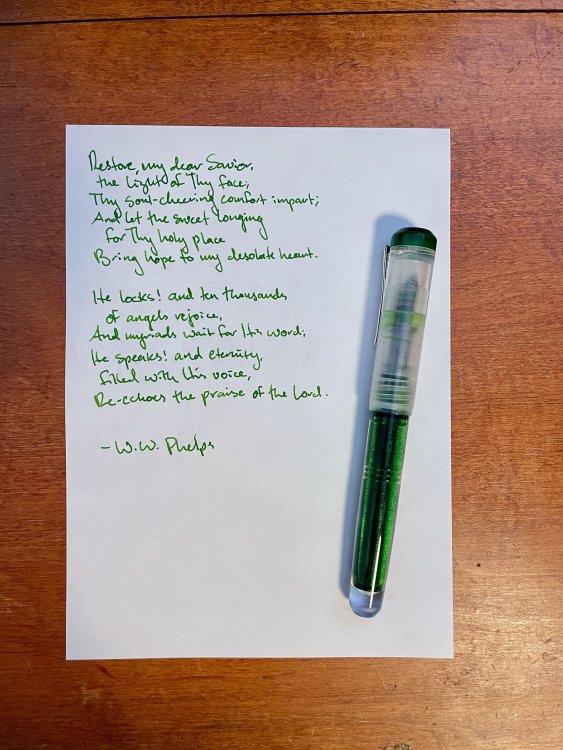 Restore, my dear Savior,
the light of Thy face;
Thy soul-cheering comfort impart;
And let the sweet longing
for Thy holy place
Bring hope to my desolate heart.
He looks! and ten thousands
of angels rejoice,
And myriads wait for His word;
He speaks! and eternity,
filled with His voice,
Re-echoes the praise of the Lord.
- W.W. Phelps